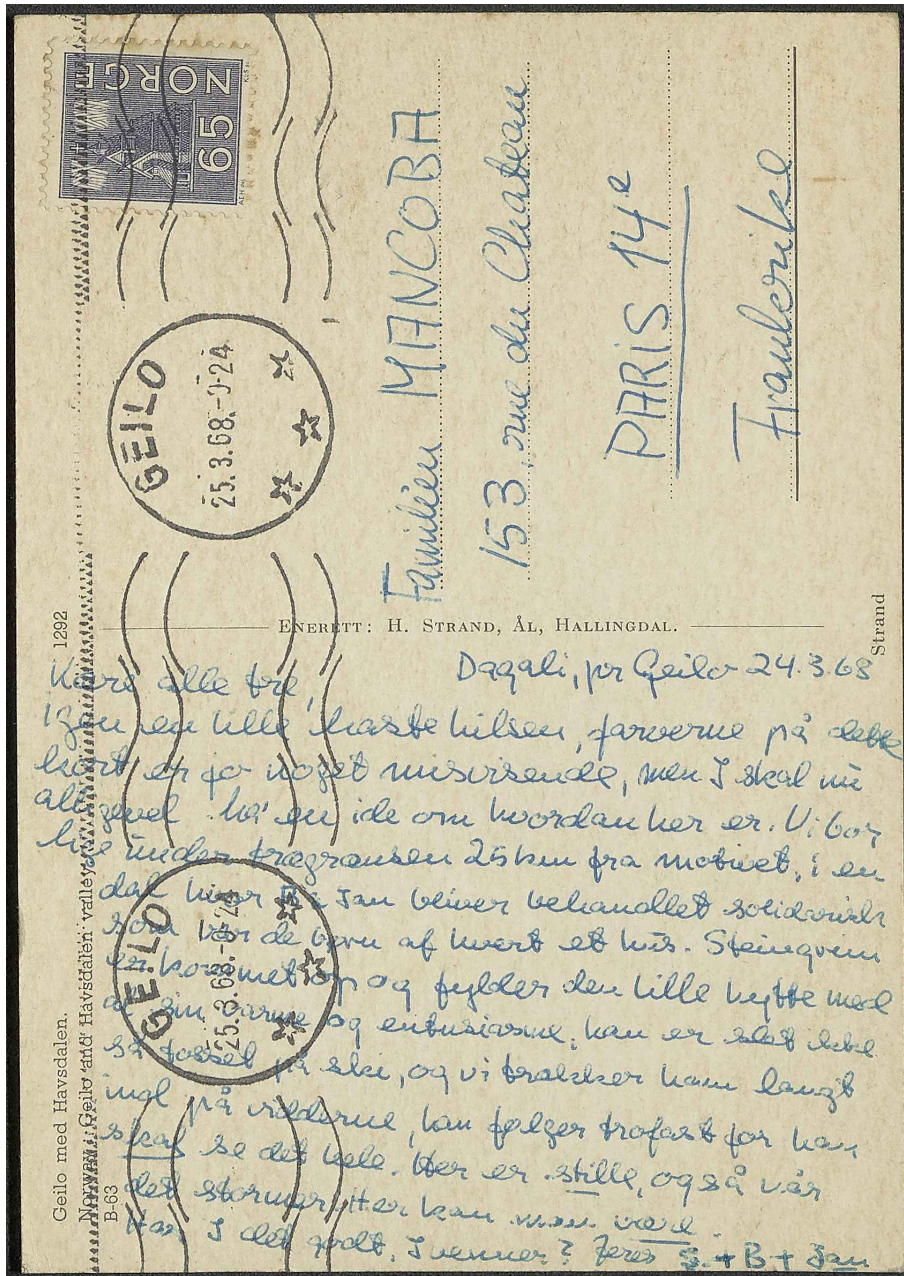 NORGE
65
GEILO
25.3.68.-9-24
Familien MANCOBA
153, rue du Chateau
PARIS 14e
Frankerike
ENERETT: H. STRAND, ÅL, HALLINGDAL.
Strand
1292
Geilo med Havsdalen.
Norway: Geilo and Havsdalen valley.
B-63
GEILO
25.3.68.-9-24
Dagali, pr Geilo 24.3.68
Kære alle tre,
Igen en lille haste hilsen, farverne på dette
kort er jo noget misvisende, men I skal nu
alligevel ha' en ide om hvordan her er. Vi bor
lige under trægrænsen 25 km fra motivet, i en
dal hvor Jan bliver behandlet solidarisk
som var de børn af hvert et hus. Steingrim
er kommet op og fylder den lille hytte med
al sin varme og entusiasme, han er slet ikke
så tosset på ski, og vi trækker ham langt
ind på vidderne, han følger trofast for han
skal se det hele. Her er stille, også når
det stormer. Her kan man være.
Har I det godt, I venner? Jeres S. + B + Jan